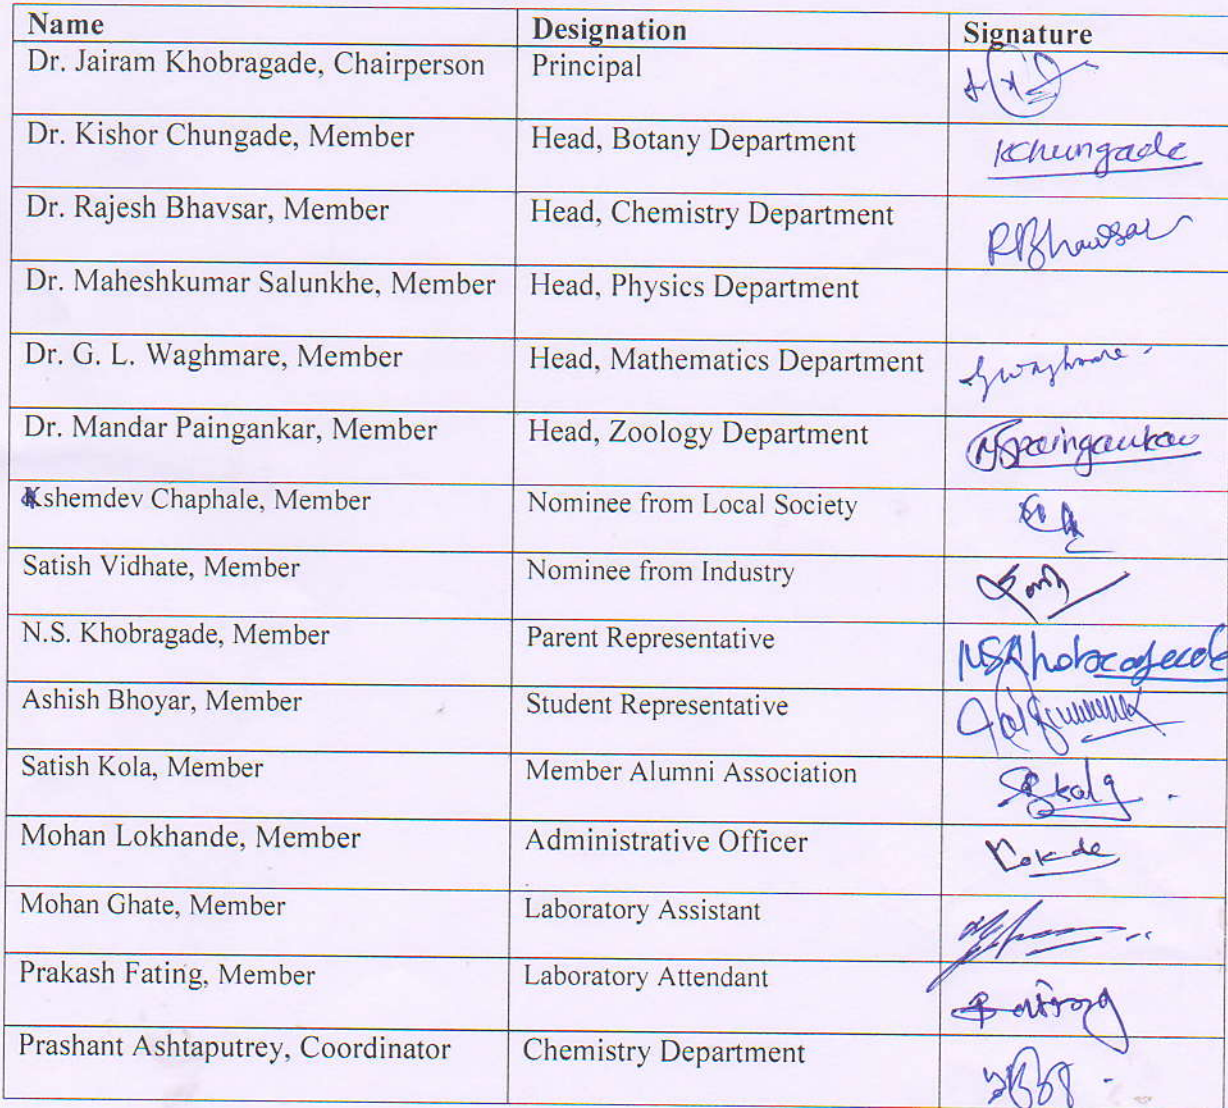 Name Designation Signature
Dr. Jairam Khobragade, Chairperson Principal
Dr. Kishor Chungade, Member Head, Botany Department KChungade
Dr. Rajesh Bhavsar, Member Head, Chemistry Department RBhavsar
Dr. Maheshkumar Salunkhe, Member Head, Physics Department
Dr. G. L. Waghmare, Member Head, Mathematics Department Gwaghmare
Dr. Mandar Paingankar, Member Head, Zoology Department Paingankar
Kshemdev Chaphale, Member Nominee from Local Society
Satish Vidhate, Member Nominee from Industry
N.S. Khobragade, Member Parent Representative NSKhobragade
Ashish Bhoyar, Member Student Representative
Satish Kola, Member Member Alumni Association
Mohan Lokhande, Member Administrative Officer
Mohan Ghate, Member Laboratory Assistant
Prakash Fating, Member Laboratory Attendant
Prashant Ashtaputrey, Coordinator Chemistry Department